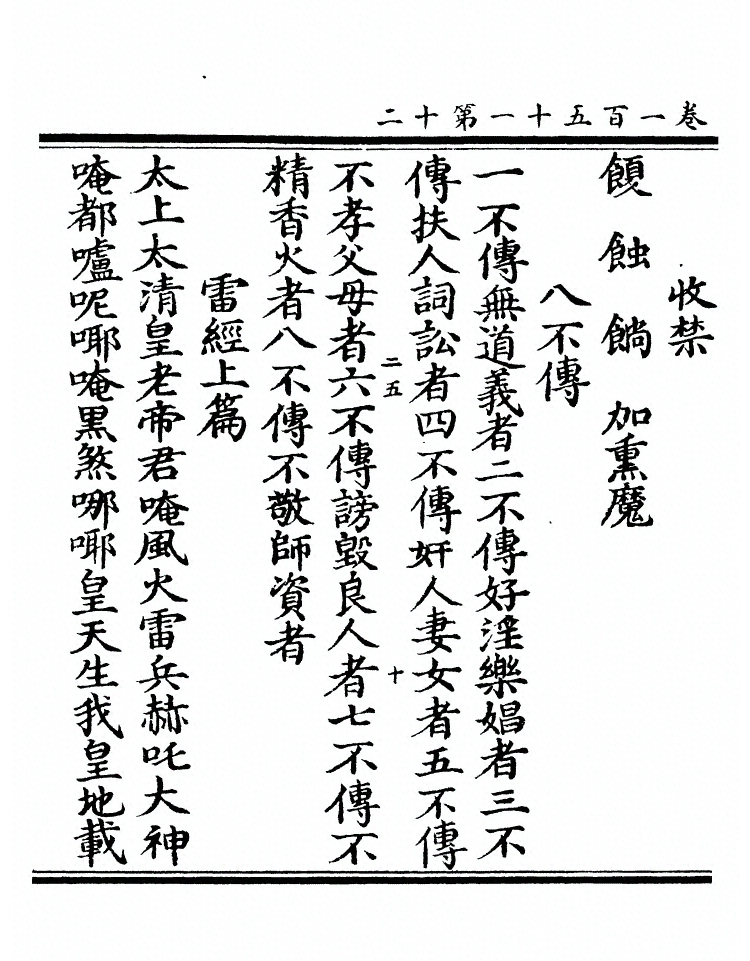 卷一百五十一第十二
收禁
餽 蝕 餉 加熏魔
八不傳
一不傳無道義者二不傳好淫樂娼者三不
傳扶人詞訟者四不傳奸人妻女者五不傳
二五 十
不孝父母者六不傳謗毀良人者七不傳不
精香火者八不傳不敬師資者
雷經上篇
太上太清皇老帝君唵風火雷兵赫吒大神
唵都嚧呢哪唵黑煞哪哪皇天生我皇地載